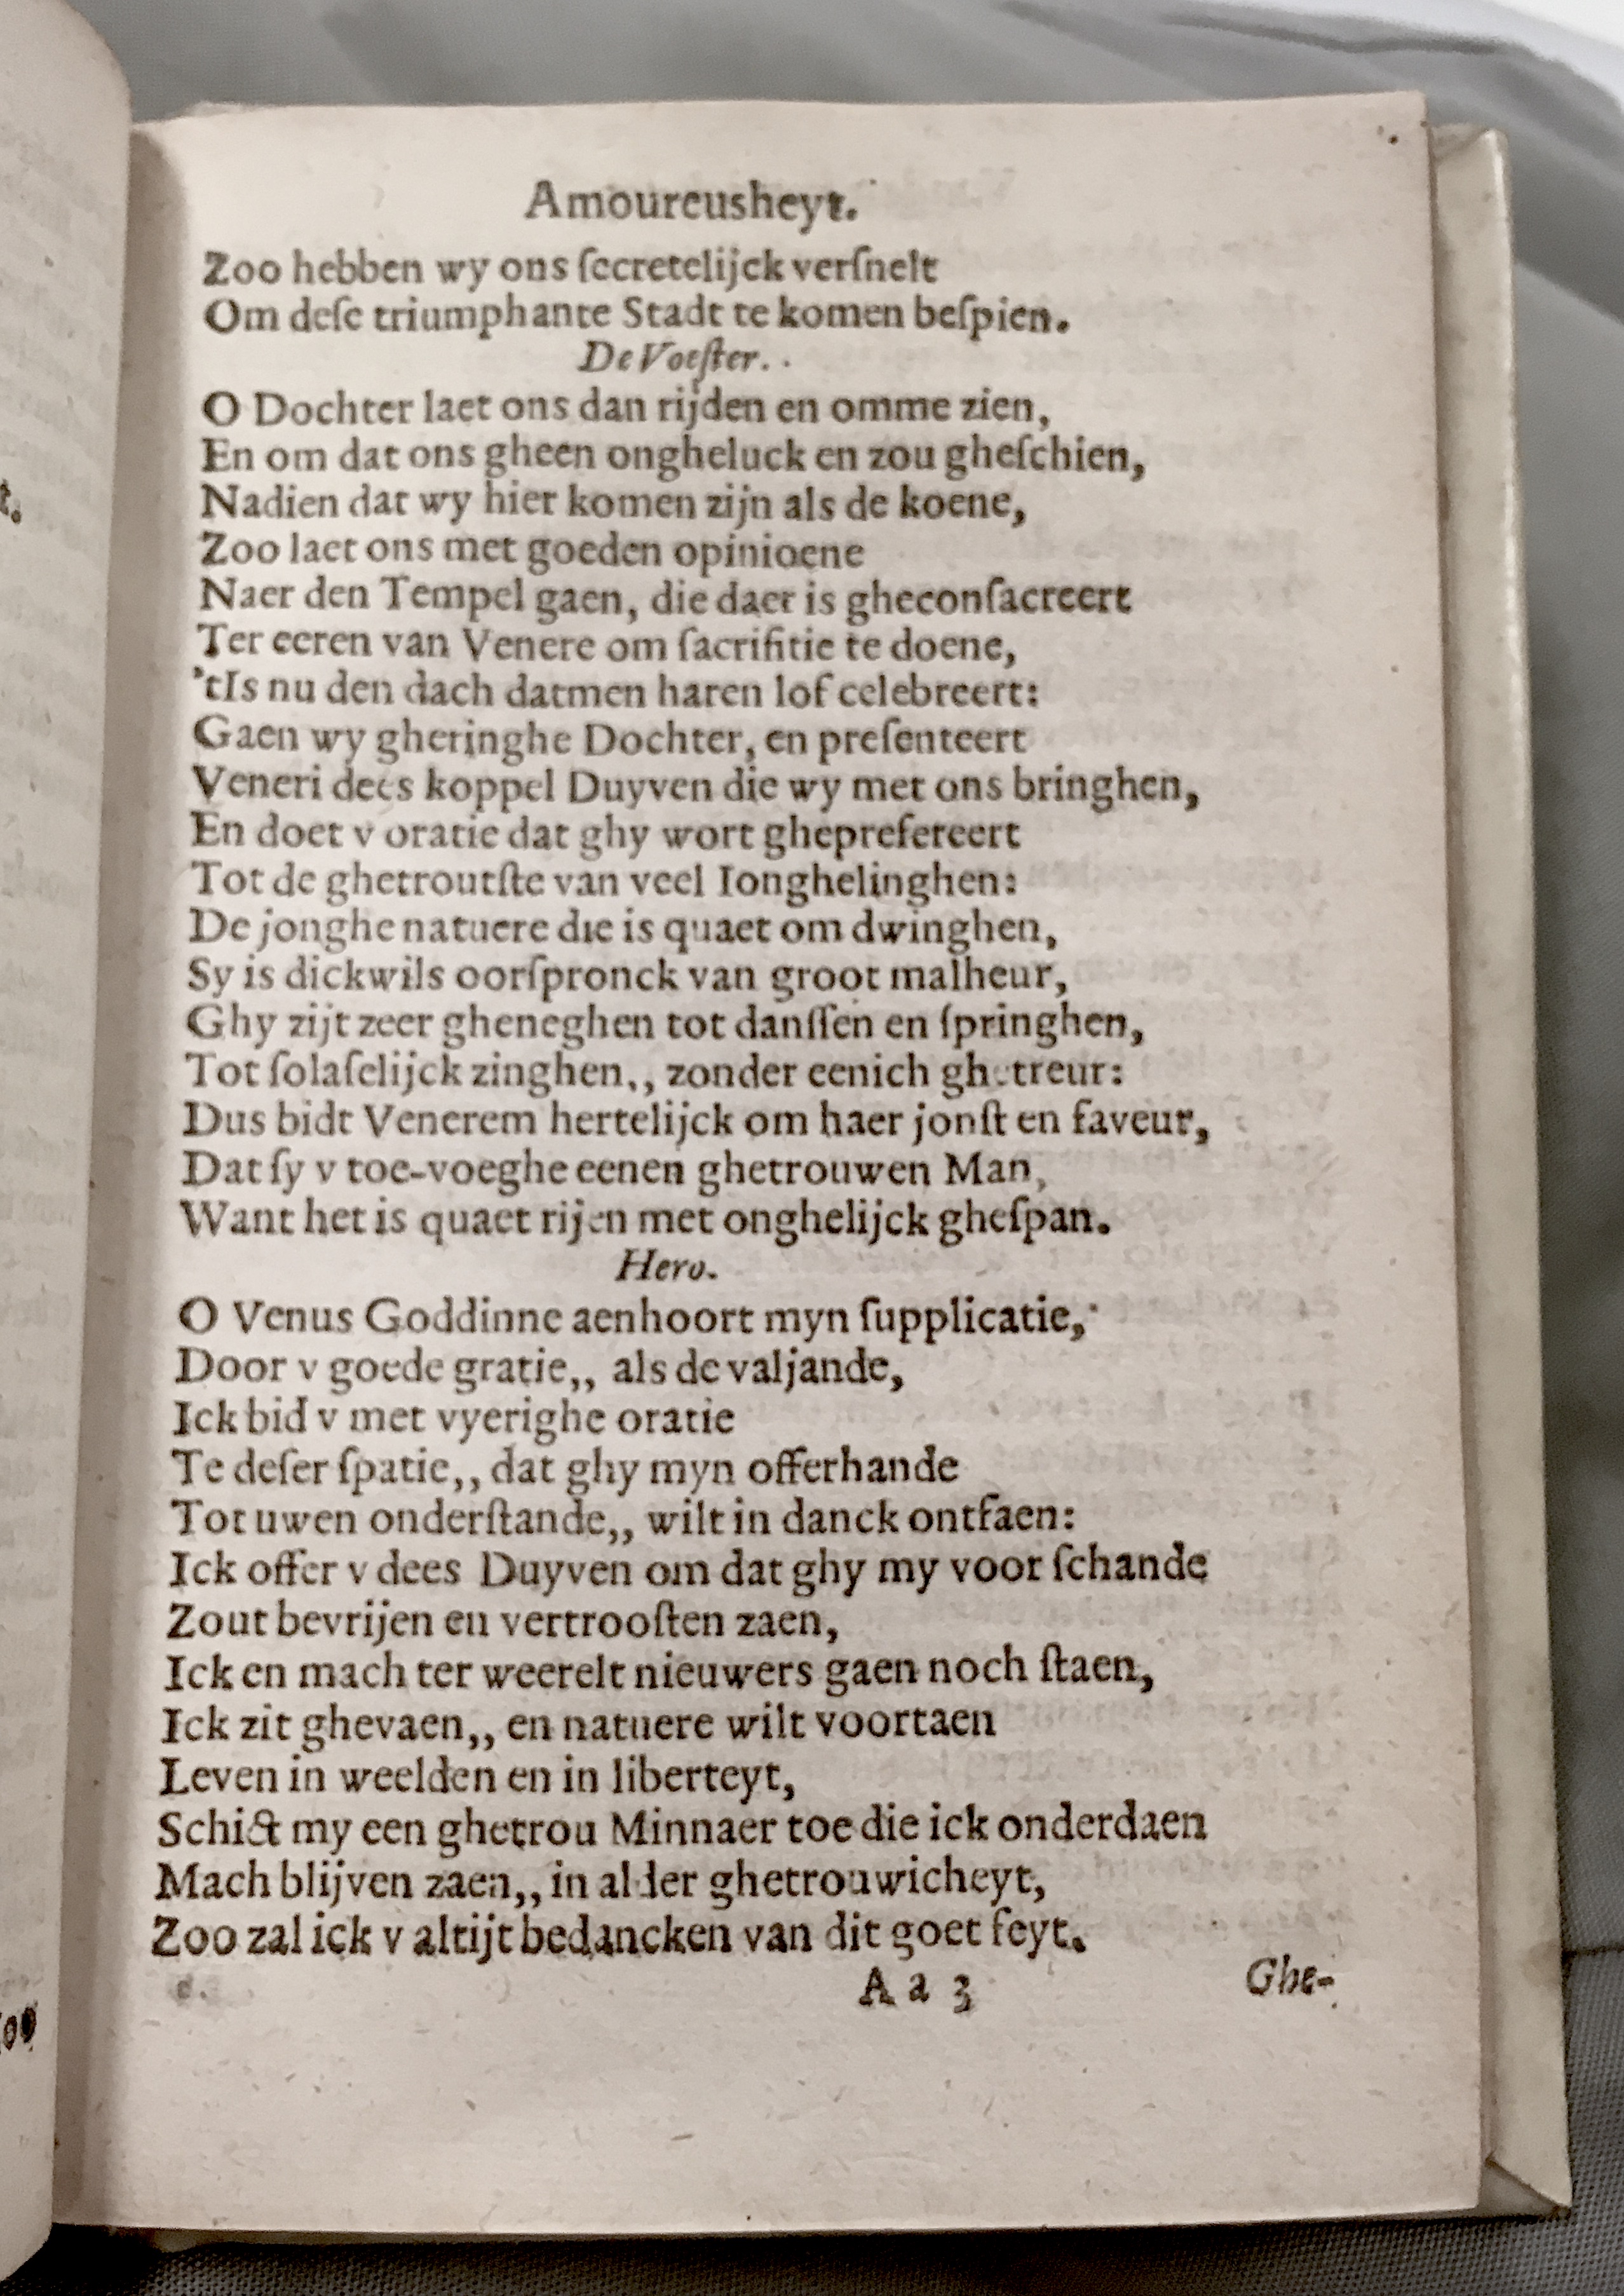 Amoureusheyt.
Zoo hebben wy ons ſecretelijck verſnelt
Om deſe triumphante Stadt te komen beſpien.
De Voeſter.
O Dochter laet ons dan rijden en omme zien,
En om dat ons gheen ongheluck en zou gheſchien,
Nadien dat wy hier komen zijn als de koene,
Zoo laet ons met goeden opinioene
Naer den Tempel gaen, die daer is gheconſacreert
Ter eeren van Venere om ſacrifitie te doene,
'tIs nu den dach datmen haren lof celebreert:
Gaen wy gheringhe Dochter, en preſenteert
Veneri dees koppel Duyven die wy met ons bringhen,
En doet v oratie dat ghy wort gheprefereert
Tot de ghetroutſte van veel Ionghelinghen:
De jonghe natuere die is quaet om dwinghen,
Sy is dickwils oorſpronck van groot malheur,
Ghy zijt zeer gheneghen tot danſſen en ſpringhen,
Tot ſolaſelijck zinghen,, zonder eenich ghetreur:
Dus bidt Venerem hertelijck om haer jonſt en faveur,
Dat ſy v toe-voeghe eenen ghetrouwen Man,
Want het is quaet rijen met onghelijck gheſpan.
Hero.
O Venus Goddinne aenhoort myn ſupplicatie,
Door v goede gratie,, als de valjande,
Ick bid v met vyerighe oratie
Te deſer ſpatie,, dat ghy myn offerhande
Tot uwen onderſtande,, wilt in danck ontfaen:
Ick offer v dees Duyven om dat ghy my voor ſchande
Zout bevrijen en vertrooſten zaen,
Ick en mach ter weerelt nieuwers gaen noch ſtaen,
Ick zit ghevaen,, en natuere wilt voortaen
Leven in weelden en in liberteyt,
Schict my een ghetrou Minnaer toe die ick onderdaen
Mach blijven zaen,, in alder ghetrouwicheyt,
Zoo zal ick v altijt bedancken van dit goet feyt.
A a 3 Ghe-